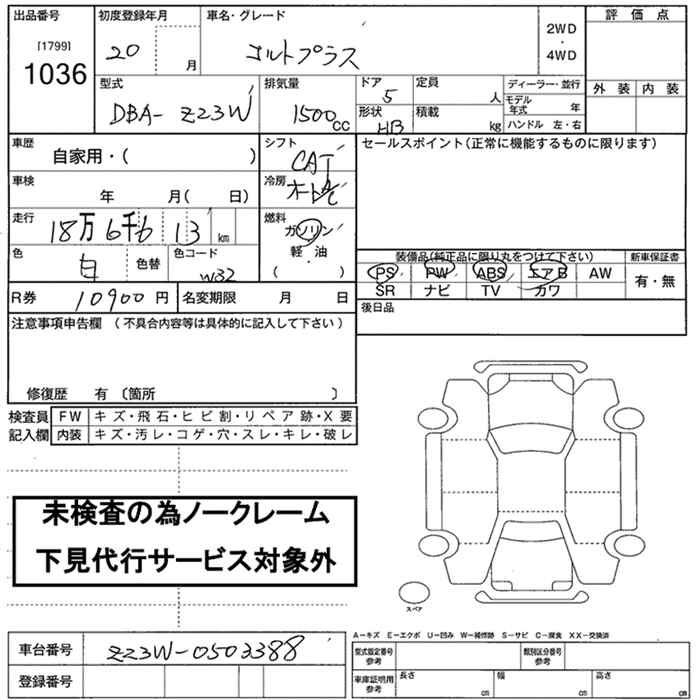 出品番号 初度登録年月 車名・グレード 評価点
[1799]
1036 20 月 コルトプラス 2WD・4WD
外装 内装
型式 排気量 ドア 定員 ディーラー・並行
DBA- Z23W 1500cc 5 人 モデル年式 年
形状 積載
HB kg ハンドル 左・右
車歴 シフト セールスポイント(正常に機能するものに限ります)
自家用・( ) CAT
車検 冷房
年 月( 日)
走行 燃料
18万6千 13 km ガソリン
軽・油
( )
色 色替 色コード 装備品(純正品に限り丸をつけて下さい) 新車保証書
白 W32 PS PW ABS エアB AW 有・無
SR ナビ TV カワ
R券 10900円 名変期限 月 日 後日品
注意事項申告欄 (不具合内容等は具体的に記入して下さい)
修復歴 有 〔箇所 〕
検査員 FW キズ・飛石・ヒビ割・リペア跡・X要
記入欄 内装 キズ・汚レ・コゲ・穴・スレ・キレ・破レ
未検査の為ノークレーム
下見代行サービス対象外
スペア
A-キズ E-エクボ U-凹み W-補修跡 S-サビ C-腐食 XX-交換済
車台番号 Z23W-0503388 型式指定番号 参考 類別区分番号 参考
登録番号 車庫証明用 参考 長さ cm 幅 cm 高さ cm